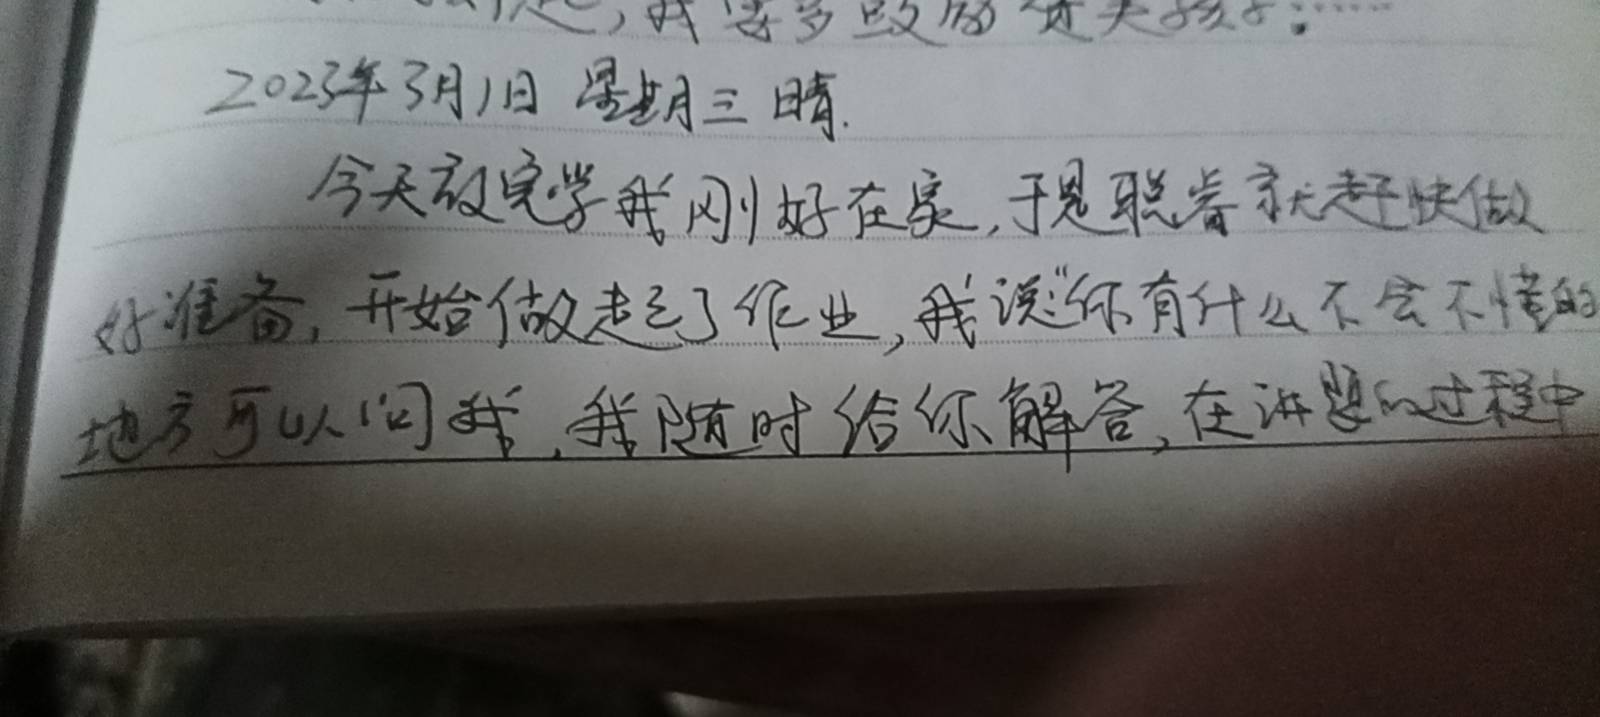 起，我要多鼓励赞美孩子：……
2023年3月1日 星期三 晴.
今天放完学我刚好在家，于是聪睿就赶快做
好准备，开始做起了作业，我说："你有什么不会不懂的
地方可以问我，我随时给你解答，在讲题的过程中